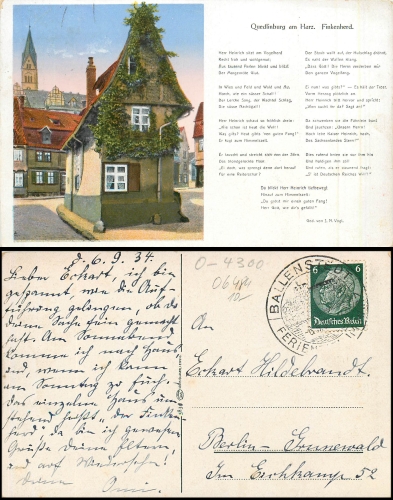 Quedlinburg am Harz. Finkenherd.
Herr Heinrich sitzt am Vogelherd
Recht froh und wohlgemut;
Aus tausend Perlen blinkt und blitzt
Der Morgenröte Glut.
In Wies und Feld und Wald und Au,
Horch, welch ein süßer Schall!
Der Lerche Sang, der Wachtel Schlag,
Die süße Nachtigall!
Herr Heinrich schaut so fröhlich drein:
„Wie schön ist heut die Welt!
Was gilt's? heut gibt's nen guten Fang!"
Er lugt zum Himmelszelt.
Er lauscht und streicht sich von der Stirn
Das blondgelockte Haar
„Ei doch! was sprengt denn dort herauf
Für eine Reiterschar?"
Der Staub wallt auf, der Hufschlag dröhnt,
Es naht der Waffen Klang.
„Daß Gott! Die Herrn verderben mir
Den ganzen Vogelfang.
Ei nun! was gibt's?" — Es hält der Troß
Vorm Herzog plötzlich an
Herr Heinrich tritt hervor und spricht:
„Wen sucht ihr da? Sagt an!"
Da schwenken sie die Fähnlein bunt
Und jauchzen: „Unsern Herrn!
Hoch lebe Kaiser Heinrich, hoch,
Des Sachsenlandes Stern!"
Dies rufend knien sie vor ihm hin
Und huldigen ihm still
Und rufen, als er staunend fragt:
„'S ist Deutschen Reiches Will'!"
Da blickt Herr Heinrich tiefbewegt
Hinauf zum Himmelszelt:
„Du gabst mir einen guten Fang!
Herr Gott, wie dir's gefällt!"
Ged. von J. N. Vogl.
6.9.34
O-4300
Lieber Eckart, ich bin
gespannt, wie die Auf-
führung gelungen, ob du
deine Sache fein gemacht
hast. Am Sonnabend
komme ich nach Haus,
und, wenn ich kann
am Sonntag zu Euch.
das einzelne Haus un-
stehend heißt „der Finken-
herd", da bin ich gewesen
Grüße deine Eltern,
und auf Wiedersehn!
Deine Omi.
BALLENSTEDT
6 6
Deutsches Reich
An
Eckart Hildebrandt.
Berlin-Grunewald
Im Eichkamp 52